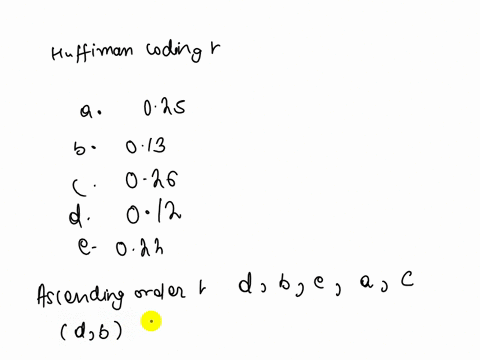 Huffiman coding r
a. 0.25
b. 0.13
c. 0.26
d. 0.12
e- 0.22
Ascending order r d, b, e, a, c
(d,b)